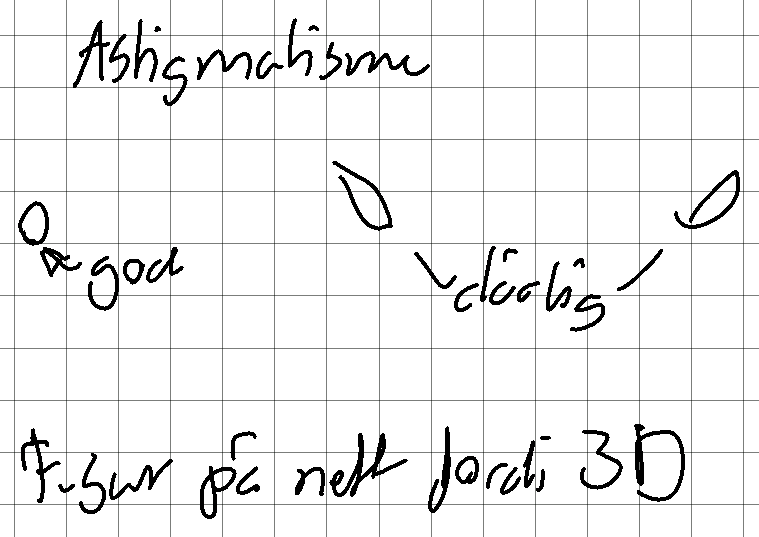 Astigmatisme
god
dårlig
Figur på nett fordi 3D